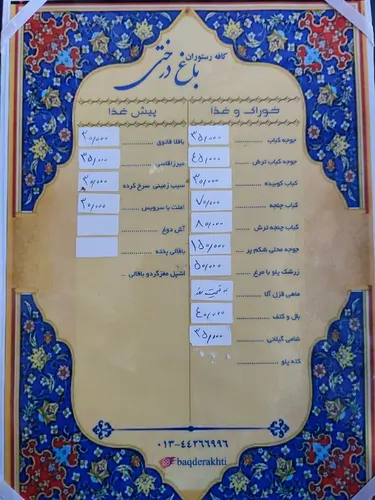 کافه رستوران
باغ درختی
خوراک و غذا
جوجه کباب ........ ۳۵,۰۰۰
جوجه کباب ترش ........ ۴۵,۰۰۰
کباب کوبیده ........ ۳۰,۰۰۰
کباب چنجه ........ ۷۰,۰۰۰
کباب چنجه ترش ........ ۸۰,۰۰۰
جوجه محلی شکم پر ........ ۱۵۰,۰۰۰
زرشک پلو با مرغ ........ ۵۰,۰۰۰
ماهی قزل آلا ........ به قیمت روز
بال و کتف ........ ۴۰,۰۰۰
شامی گیلانی ........ ۳۵,۰۰۰
کته پلو ........
پیش غذا
باقلا قاتوق ........ ۳۰,۰۰۰
میرزاقاسمی ........ ۳۵,۰۰۰
سیب زمینی سرخ کرده ........ ۳۰,۰۰۰
املت با سرویس ........ ۳۰,۰۰۰
آش دوغ ........
باقالی پخته ........
اشپل مغزگردو باقالی ..
۰۱۳-۴۴۲۶۶۹۹۶
baqderakhti